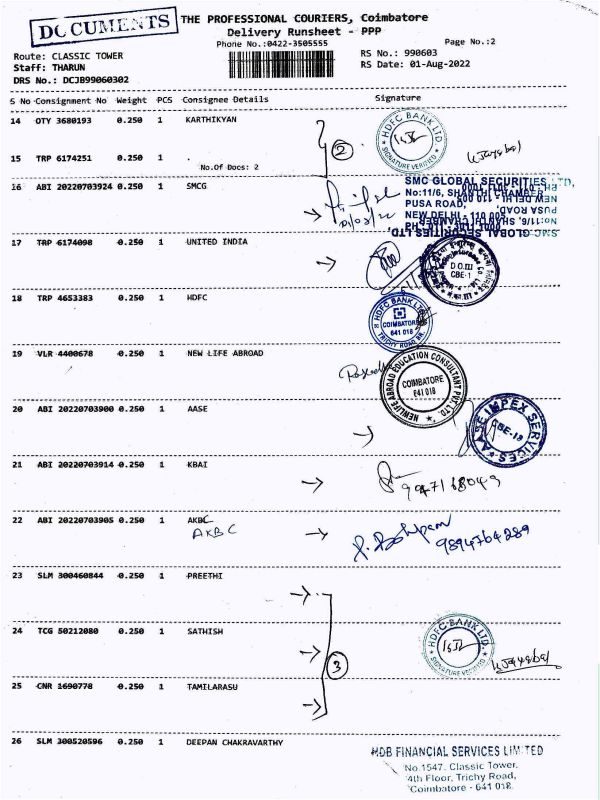 DOCUMENTS
THE PROFESSIONAL COURIERS, Coimbatore
Delivery Runsheet - PPP
Phone No.:0422-3505555
Page No.:2
Route: CLASSIC TOWER
Staff: THARUN
DRS No.: DCJB99060302
RS No.: 990603
RS Date: 01-Aug-2022
S No Consignment No Weight PCS Consignee Details Signature
14 OTY 3680193 0.250 1 KARTHIKYAN
HDFC BANK LTD. SIGNATURE VERIFIED
2
15 TRP 6174251 0.250 1 .
No.Of Docs: 2
16 ABI 20220703924 0.250 1 SMCG
SMC GLOBAL SECURITIES LTD,
No:11/6, SHANTHI CHAMBER
PUSA ROAD,
NEW DELHI - 110 005
PH : 011 - 3011 1000
17 TRP 6174098 0.250 1 UNITED INDIA
D.O.III
CBE-1
18 TRP 4653383 0.250 1 HDFC
HDFC BANK LTD
COIMBATORE
641 018
TRICHY ROAD BR.
19 VLR 4400678 0.250 1 NEW LIFE ABROAD
NEWLIFE ABROAD EDUCATION CONSULTANT PVT. LTD.
COIMBATORE
641 018
20 ABI 20220703900 0.250 1 AASE
AASE IMPEX SERVICES
CBE-18
21 ABI 20220703914 0.250 1 KBAI
9947168049
22 ABI 20220703905 0.250 1 AKBC
AKBC
9894764289
23 SLM 300460844 0.250 1 PREETHI
24 TCG 50212080 0.250 1 SATHISH
HDFC BANK LTD. SIGNATURE VERIFIED
3
25 CNR 1690778 0.250 1 TAMILARASU
26 SLM 300520596 0.250 1 DEEPAN CHAKRAVARTHY
HDB FINANCIAL SERVICES LIMITED
No.1547, Classic Tower,
4th Floor, Trichy Road,
Coimbatore - 641 018.